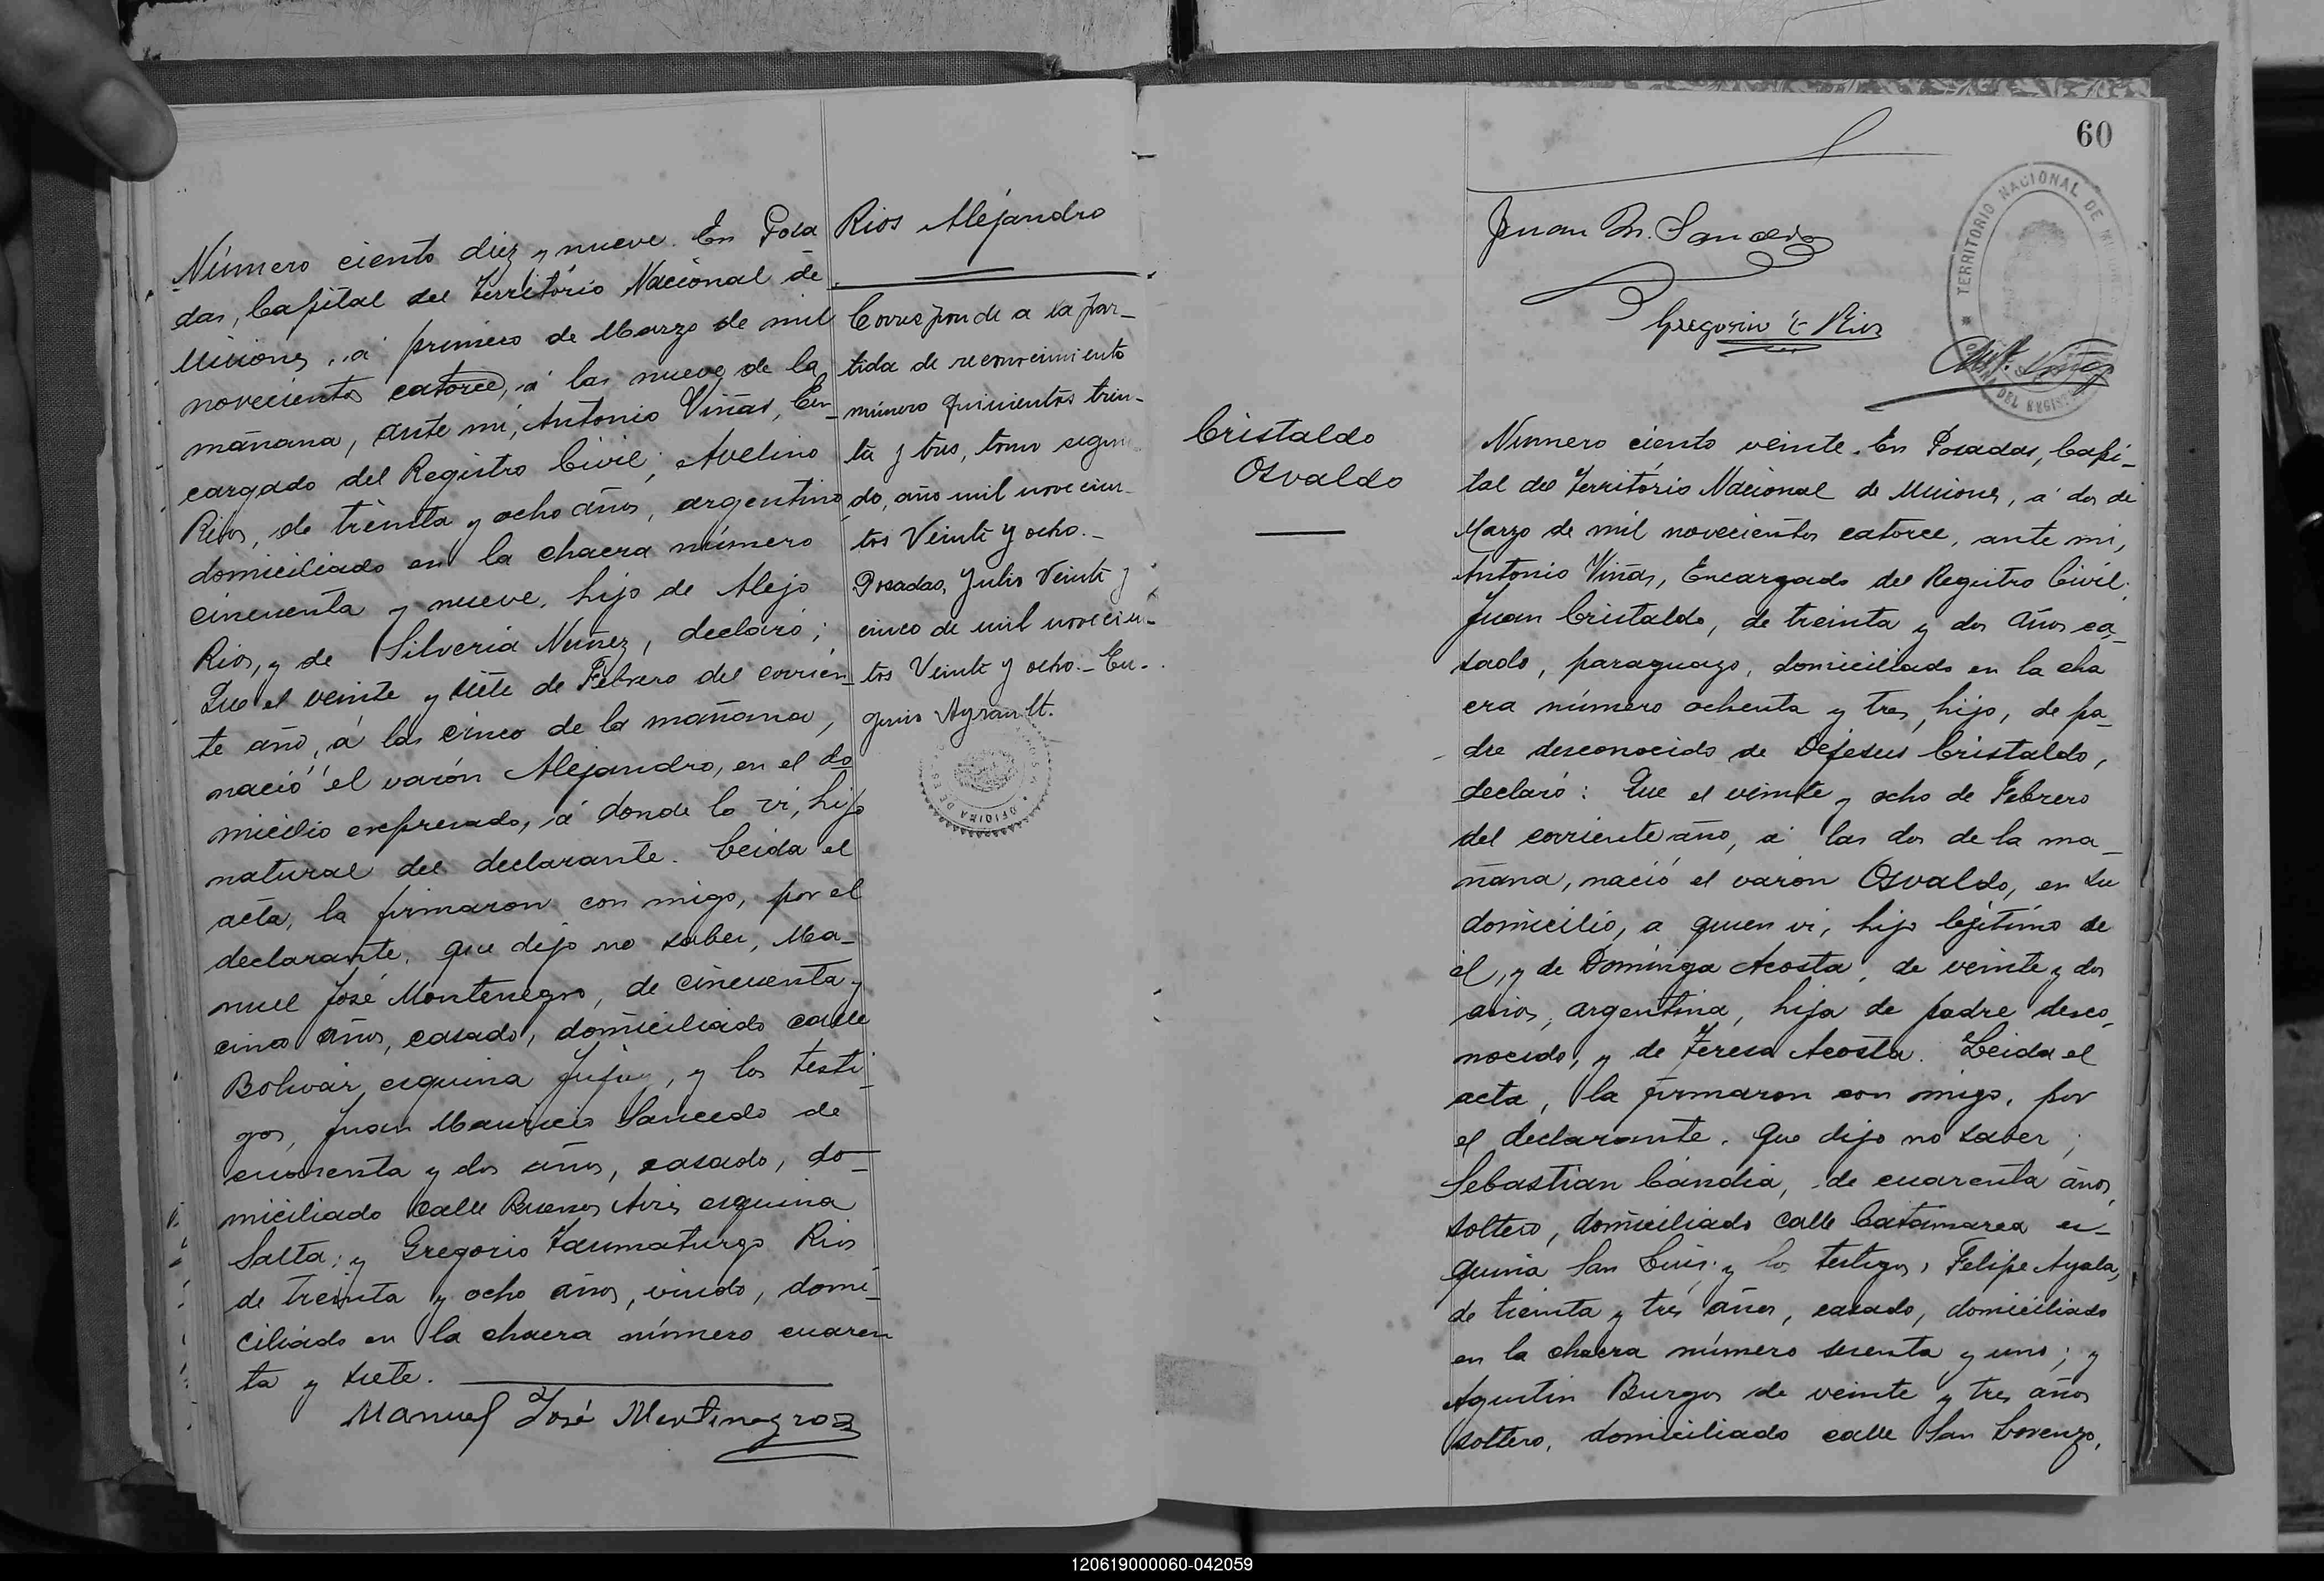 Número ciento diez y nueve. En Posa
das, Capital del Territorio Nacional de
Misiones, á primero de Marzo de mil
novecientos catorce, á las nueve de la
mañana, ante mi, Antonio Viñas, En
cargado del Registro Civil; Avelino
Rios, de treinta y ocho años, argentino
domiciliado en la chacra número
cincuenta y nueve, hijo de Alejo
Rios, y de Silveria Nuñez, declaró;
Que el veinte y siete de Febrero del corrien
te año, á las cinco de la mañana,
nació el varón Alejandro, en el do
micilio expresado, á donde lo vi, hijo
natural del declarante. Leida el
acta, la firmaron con migo, por el
declarante, que dijo no saber, Ma-
nuel José Montenegro, de cincuenta y
cinco años, casado, domiciliado calle
Bolivar, esquina Jujuy, y los testi
gos, Juan Mauricio Saucedo de
cuarenta y dos años, casado, do-
miciliado calle Buenos Aires esquina
Salta; y Gregorio Taumaturgo Rios
de treinta y ocho años, viudo, domi
ciliado en la chacra número cuaren
ta y siete.
Manuel José Montenegro
Rios Alejandro
Corresponde a la par-
tida de reconocimiento
número quinientos trein-
ta y tres, tomo segun
do, año mil novecien-
tos Veinte y ocho.-
Posadas, Julio Veinte y
cinco de mil novecien-
tos Veinte y ocho.- Eu-
genio Ayrault.
OFICINA DE
60
Juan M. Saucedo
Gregorio T. Rios
TERRITORIO NACIONAL DE MISIONES
DEL REGISTRO
Ant. Viñas
Cristaldo
Osvaldo
Número ciento veinte. En Posadas, Capi-
tal del Territorio Nacional de Misiones, á dos de
Marzo de mil novecientos catorce, ante mi,
Antonio Viñas, Encargado del Registro Civil;
Juan Cristaldo, de treinta y dos años ca-
sado, paraguayo, domiciliado en la cha
cra número ochenta y tres, hijo, de pa
dre desconocido de Dejesus Cristaldo,
declaró: Que el veinte y ocho de Febrero
del corriente año, á las dos de la ma-
ñana, nació el varón Osvaldo, en su
domicilio, a quien vi, hijo legitimo de
él, y de Dominga Acosta, de veinte y dos
años, argentina, hija de padre desco
nocido, y de Teresa Acosta. Leida el
acta, la firmaron con migo, por
el declarante, que dijo no saber,
Sebastian Cándia, de cuarenta años,
soltero, domiciliado calle Catamarca es-
quina San Luis; y los testigos, Felipe Ayala,
de treinta y tres años, casado, domiciliado
en la chacra número sesenta y uno; y
Agustin Burgos de veinte y tres años
soltero, domiciliado calle San Lorenzo,
120619000060-042059